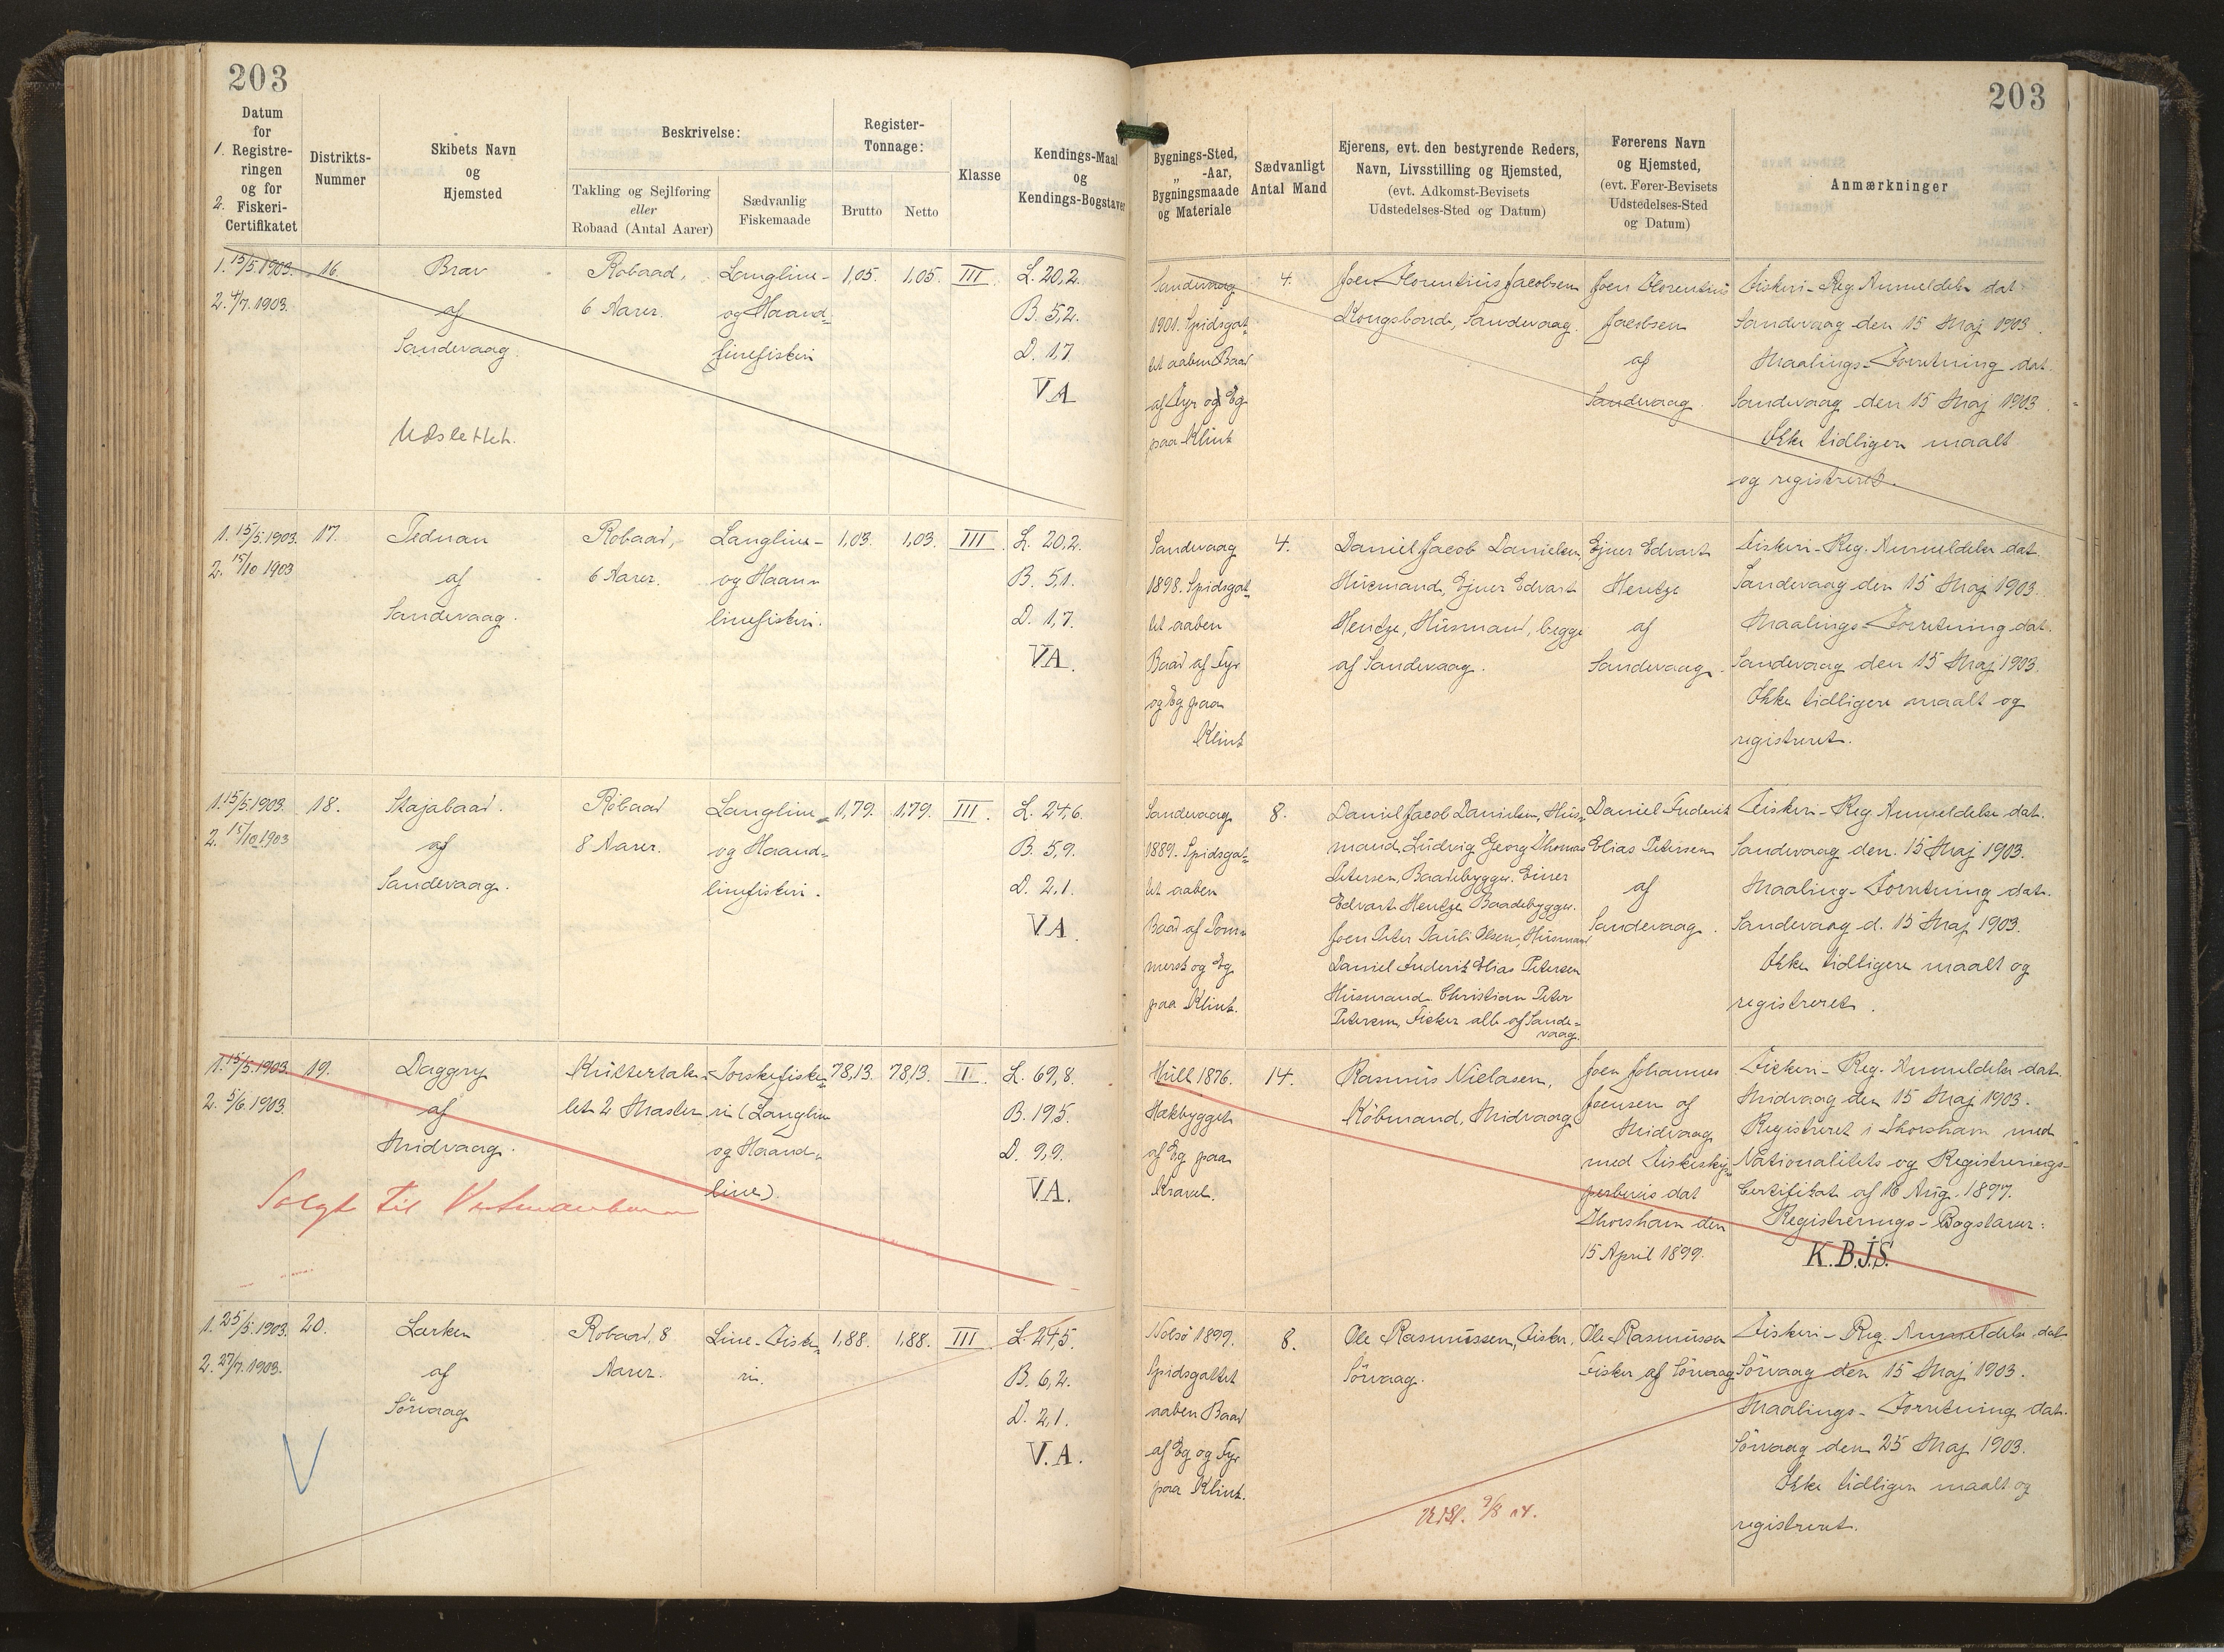 203
203
Datum
for
1. Registre-
ringen
og for
2. Fiskeri-
Certifikatet
Distrikts-
Nummer
Skibets Navn
og
Hjemsted
Beskrivelse:
Takling og Sejlføring
eller
Robaad (Antal Aarer)
Sædvanlig
Fiskemaade
Register-
Tonnage:
Brutto
Netto
Klasse
Kendings-Maal
og
Kendings-Bogstaver
Bygnings-Sted,
„ -Aar,
Bygningsmaade
og Materiale
Sædvanligt
Antal Mand
Ejerens, evt. den bestyrende Reders,
Navn, Livsstilling og Hjemsted,
(evt. Adkomst-Bevisets
Udstedelses-Sted og Datum)
Førerens Navn
og Hjemsted,
(evt. Fører-Bevisets
Udstedelses-Sted
og Datum)
Anmærkninger
1. 15/5 1903.
2. 4/7. 1903.
16.
Brav
af
Sandevaag.
Udslettet.
Robaad,
6 Aarer.
Langline-
og Haand-
linefiskeri
1,05.
1,05.
III.
L. 20,2.
B. 5,2.
D. 1,7
VA
Sandevaag
1901. Spidsgat-
tet aaben Baad
af Fyr og Eg
paa Klink
4.
Joen Florentius Jacobsen
Kongsbonde, Sandevaag.
Joen Florentius
Jacobsen
af
Sandevaag.
Fiskeri-Reg. Anmeldelse dat.
Sandevaag den 15 Maj 1903.
Maalings-Forretning dat.
Sandevaag den 15 Maj 1903.
Ikke tidligere maalt
og registreret.
1. 15/5. 1903.
2. 15/10 1903
17.
Tednan
af
Sandevaag.
Robaad,
6 Aarer.
Langline-
og Haan-
linefiskeri.
1,03.
1,03.
III.
L. 20,2.
B. 5,1.
D. 1,7.
VA.
Sandevaag
1898. Spidsgat-
tet aaben
Baad af Fyr
og Eg paa
Klink
4.
Daniel Jacob Danielsen,
Husmand, Ejner Edvart
Hentze, Husmand, begge
af Sandevaag.
Ejner Edvart
Hentze
af
Sandevaag.
Fiskeri-Reg. Anmeldelse dat.
Sandevaag den 15 Maj 1903.
Maalings-Forretning dat.
Sandevaag den 15 Maj 1903.
Ikke tidligere maalt og
registreret.
1. 15/5. 1903.
2. 15/10. 1903
18.
Skajabaad.
af
Sandevaag.
Robaad
8 Aarer.
Langline-
og Haand-
linefiskeri.
1,79.
1,79.
III.
L. 24,6.
B. 5,9.
D. 2,1.
VA.
Sandevaag
1889. Spidsgat-
tet aaben
Baad af Pom-
mersk og Eg
paa Klink.
8.
Daniel Jacob Danielsen, Hus-
mand, Ludvig Georg Thomas
Petersen, Baadebygger. Einer
Edvart Hentze Baadebygger.
Joen Peter Pauli Olsen, Husmand
Daniel Frederik Elias Petersen
Husmand. Christian Peter
Petersen, Fisker alle af Sande-
vaag.
Daniel Frederik
Elias Petersen
af
Sandevaag.
Fiskeri-Reg. Anmeldelse dat.
Sandevaag den. 15 Maj 1903.
Maaling-Forretning dat.
Sandevaag d. 15 Maj 1903.
Ikke tidligere maalt og
registreret.
1. 15/5. 1903.
2. 5/6. 1903.
19.
Daggry
af
Midvaag.
Solgt til Vestmanhavn
Kuttertak-
let 2 Master
Torskefiske-
ri (Langline
og Haand-
line).
78,13.
78,13.
II.
L. 69,8.
B. 19,5.
D. 9,9.
V.A.
Hull 1876.
Hækbygget
af Eg paa
Kravel.
14.
Rasmus Nielasen,
Købmand, Midvaag
Joen Johannes
Joensen af
Midvaag
med Fiskeskip-
perbevis dat
Thorshavn den
15 April 1899.
Fiskeri-Reg. Anmeldelse dat.
Midvaag den 15 Maj 1903.
Registreret i Thorshavn med
Nationalitets og Registrerings-
Certifikat af 16 Aug. 1897.
Registrerings-Bogstaver:
K.B.J.S.
1. 25/5. 1903.
2. 27/7. 1903.
20.
Larken
af
Sörvaag
Robaad, 8
Aarer.
Line-Fiske-
ri.
1,88.
1,88.
III.
L. 24,5.
B. 6,2.
D. 2,1.
V.A.
Nolsö 1899.
Spidsgattet
aaben Baad
af Eg og Fyr
paa Klink.
8.
Ole Rasmussen, Fisker,
Sörvaag.
Ole Rasmussen
Fisker af Sörvaag
Fiskeri-Reg. Anmeldelse dat
Sörvaag den 15 Maj 1903.
Maalings-Forretning dat.
Sörvaag den 25 Maj 1903.
Ikke tidligere maalt og
registreret.